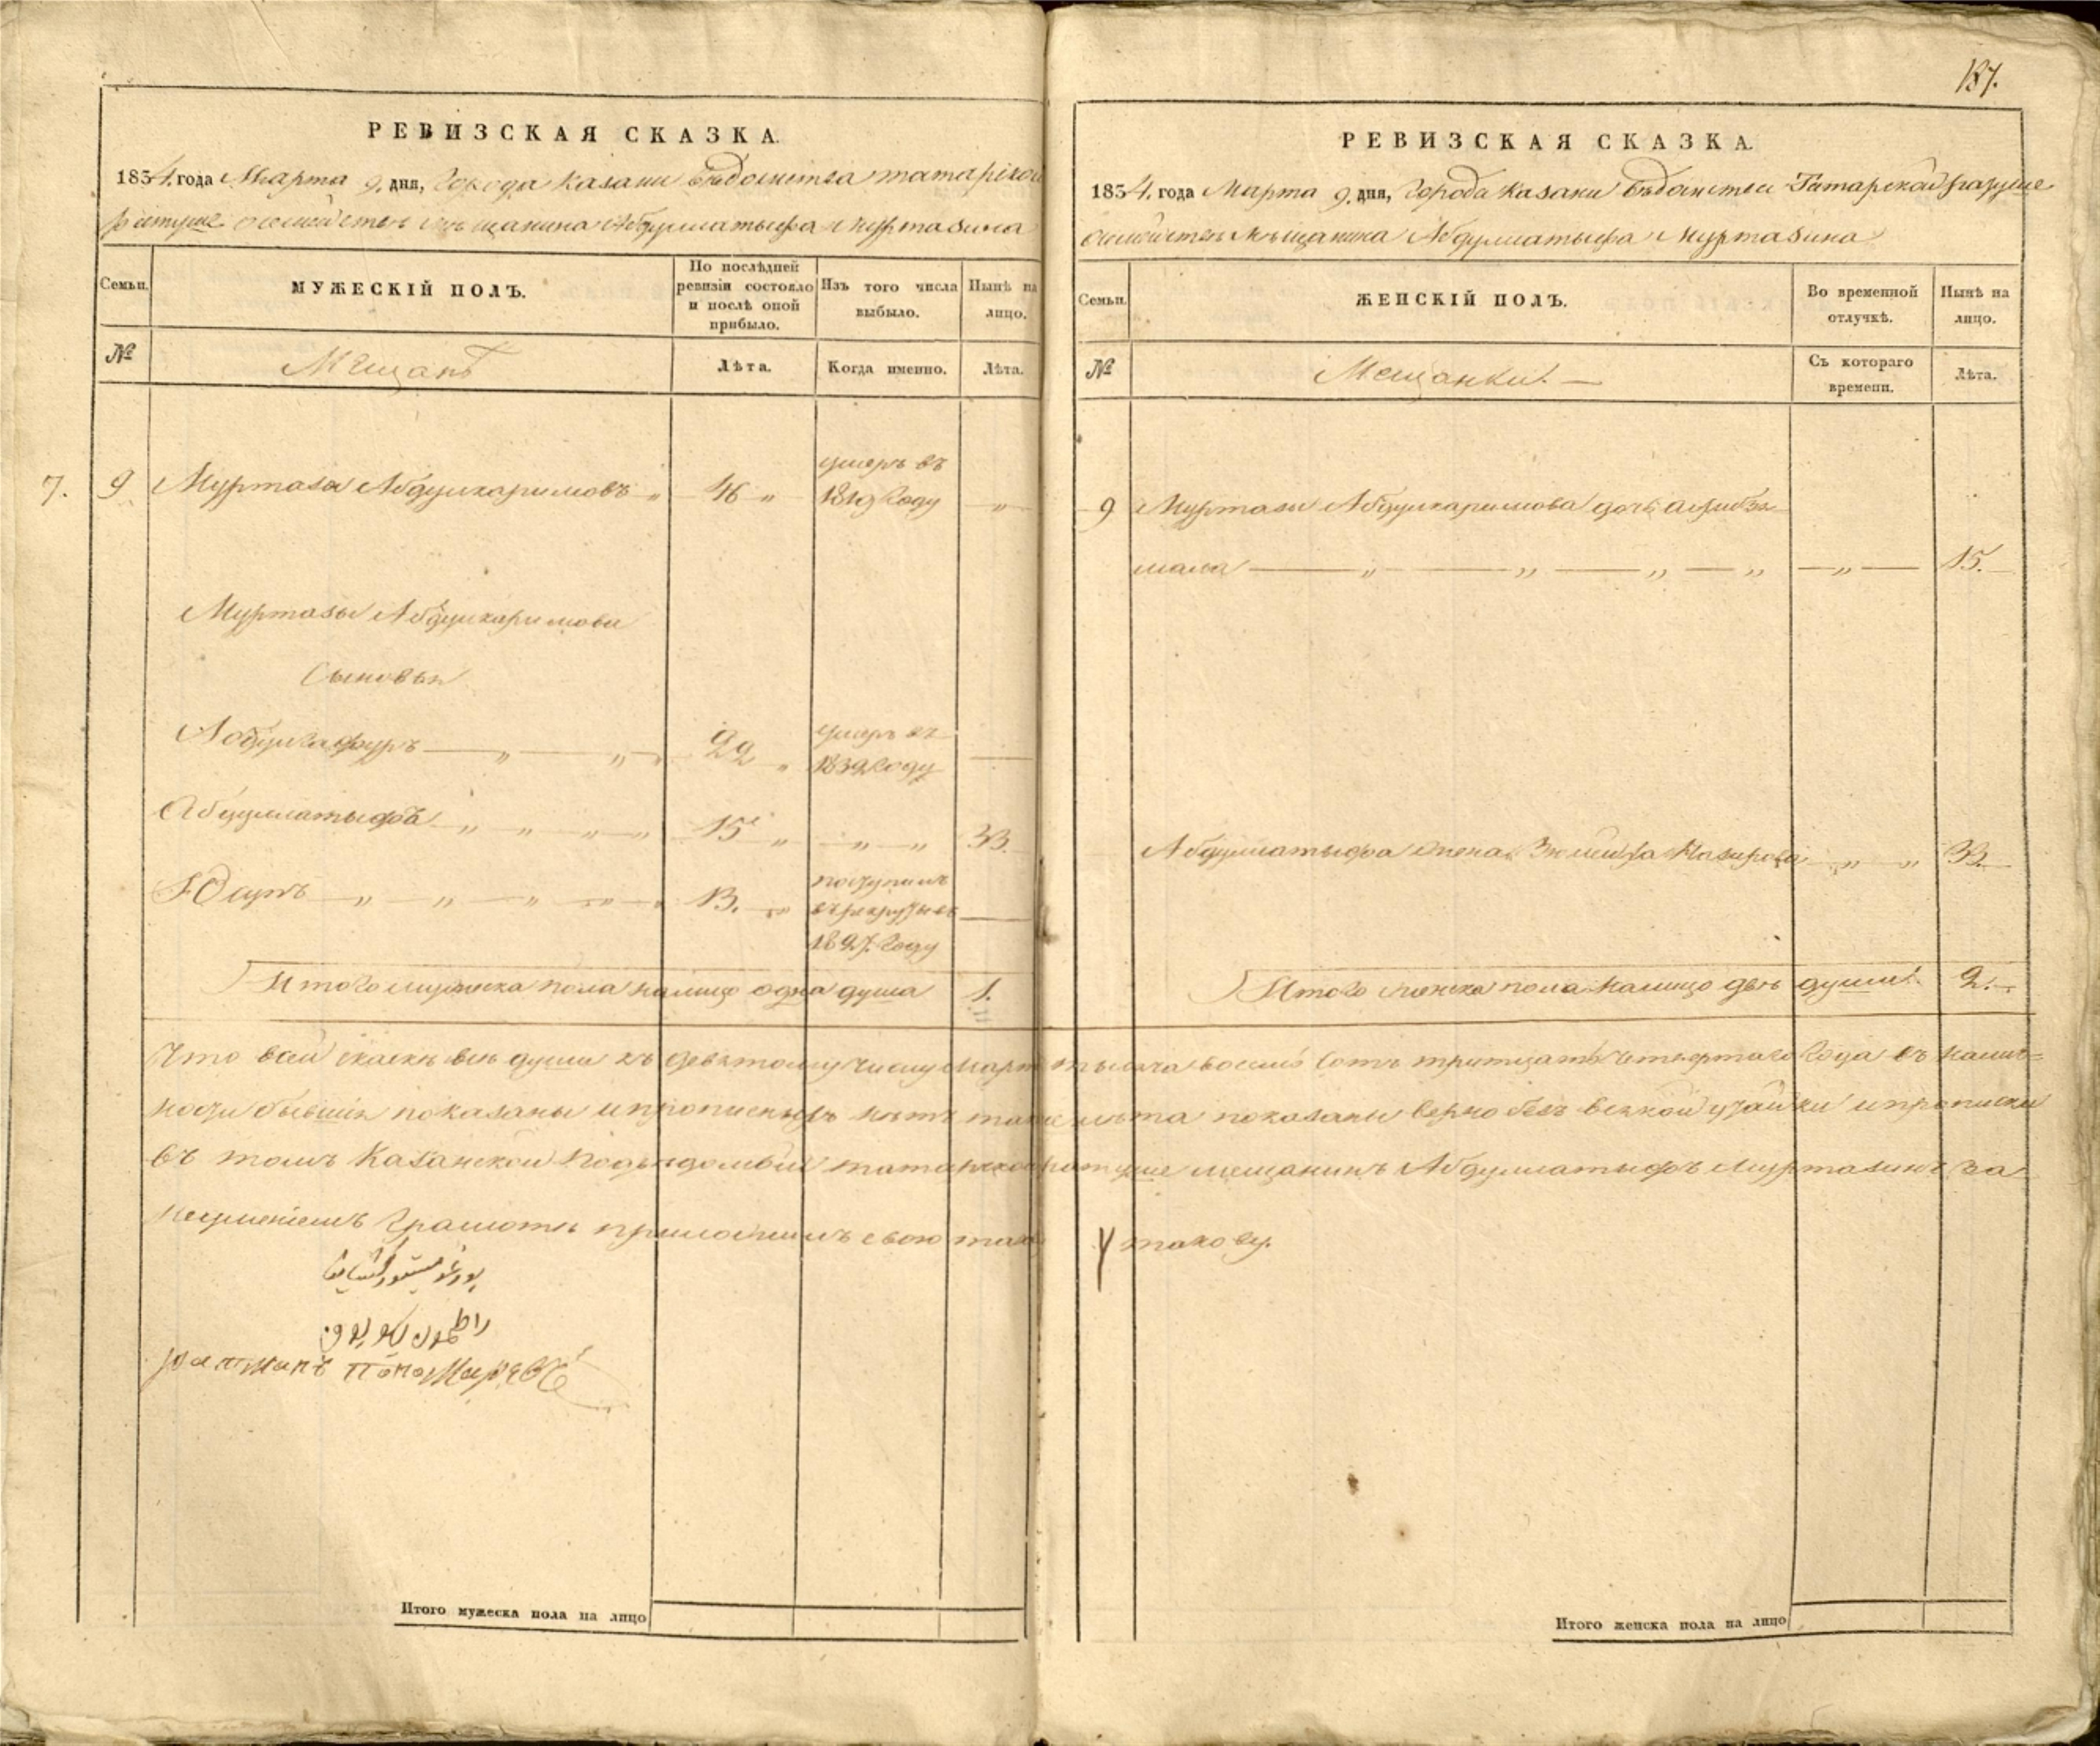 137.
РЕВИЗСКАЯ СКАЗКА.
1834. года Марта 9. дня, Города Казани вѣдомства татарской
ратуше о семействѣ мѣщанина Абдуллатыфа Муртазина
Семьи.
МУЖЕСКІЙ ПОЛЪ.
По послѣдней ревизіи состояло и послѣ оной прибыло.
Изъ того числа выбыло.
Нынѣ на лицо.
№
Мещанъ
Лѣта.
Когда именно.
Лѣта.
7.
9 Муртаза Абдулкаримовъ 46 умеръ въ
1819 Году
Муртазы Абдулкаримова
Сыновья
Абдулгафуръ 22 умеръ въ
1832 Году
Абдуллатыфъ 15 33.
Юсупъ 13. поступилъ
въ рекруты въ
1827. Году
Итого мужеска пола налицо одна душа 1.
РЕВИЗСКАЯ СКАЗКА.
1834. года Марта 9. дня, Города Казани вѣдомства Татарской ратуше
о семействѣ мѣщанина Абдуллатыфа Муртазина
Семьи.
ЖЕНСКІЙ ПОЛЪ.
Во временной отлучкѣ.
Нынѣ на лицо.
№
Мещанки.
Съ котораго времени.
Лѣта.
9 Муртазы Абдулкаримова дочь
15.
Абдуллатыфа жена Назирова 32.
Итого женска пола налицо двѣ души. 2.
Что в сей скаскѣ все души къ девятому числу марта тысяча восемь сотъ тритцать четвертаго Года въ налич=
ности бывшія показаны и прописныхъ нѣтъ лѣта показаны верно безъ всякой утайки и прописки
въ томъ Казанской подвѣдомый татарской ратуше мещанинъ Абдуллатыфъ Муртазинъ за
неумѣніемъ грамоты приложилъ свою тамгу таковy.
ратманъ Пономаревъ
Итого мужеска пола на лицо
Итого женска пола на лицо